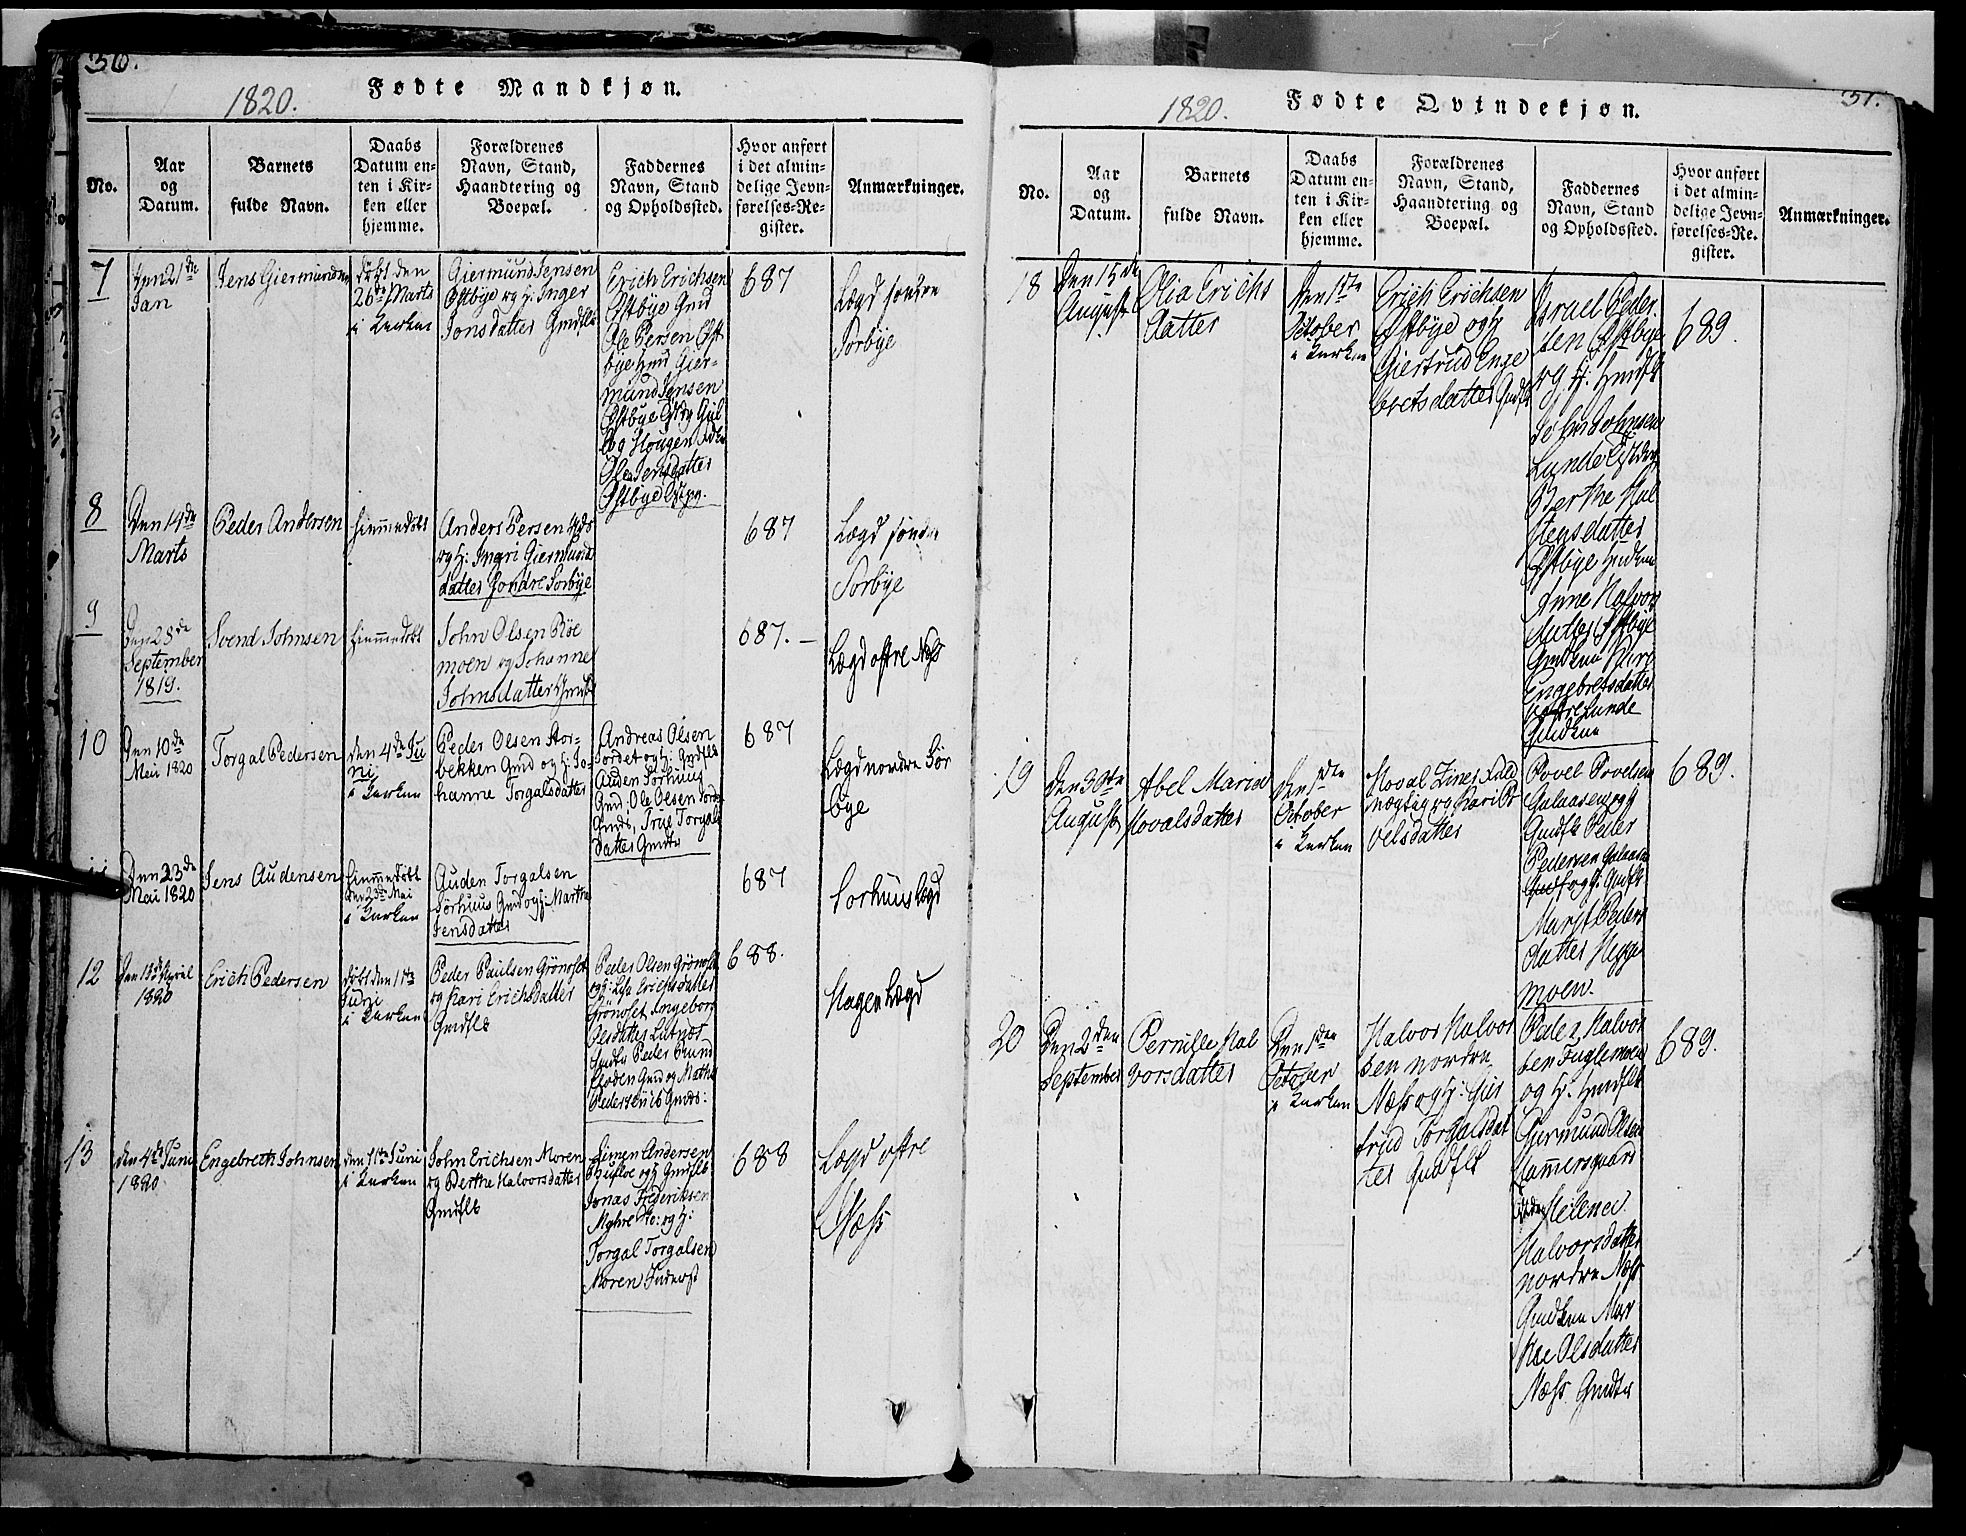 36.
1820.
Fødte Mandkjøn.
No.
Aar
og
Datum.
Barnets
fulde Navn.
Daabs
Datum en-
ten i Kir-
ken eller
hjemme.
Forældrenes
Navn, Stand,
Haandtering og
Boepæl.
Faddernes
Navn, Stand
og Opholdssted.
Hvor anført
i det almin-
delige Jevn-
førelses-Re-
gister.
Anmærkninger.
7
Den 21de
Jan
Jens Giermundsen
døbt den
26de Marts
i Kirken
Giermund Jensen
Østbye og h: Inger
Jonsdatter Gmdflk
Erich Erichsen
Østbye Gmd
Ole Persen Øst
bye Hmd Gier-
mund Jensen
Østbye
Hougen
Ole Jensdatter
Østbye
687
Lægd søndre
Sorbye
8
Den 14de
Marts
Peder Andersen
hiemmedøbt
Anders Persen
og h: Ingri Giermund
datter Søndre Sorbye
687
Lægd søndre
Sorbye
9
Den 28de
September
1819.
Svend Johnsen
hiemmedøbt
John Olsen Røe
moen og Johanne
Johnsdatter
687. —
Lægd østre Næss
10
Den 10de
Mai 1820
Torgal Pedersen
den 4de Ju
ni
i Kirken
Peder Olsen Stor-
bekken Gmd og h: Jo-
hanne Torgalsdatter
Andreas Olsen
Jordet og h: Gmdflk
Auden Sorhuus
Gmd: Ole Olsen
Gmds, Torgals
datter Gmdtr
687
Lægd nordre Sør
bye
11
Den 23de
Mai 1820
Jens Audensen
hiemmedøbt
den 23de Mai
i Kirken
Auden Torgalsen
Sørhuus Gmd og h: Marthe
Jensdatter
687
Sorhuus Lægd
12
Den April
1820
Erich Pedersen
døbt den 11te
Juni
i Kirken
Peder Paulsen Grønoset
og Kari Erichsdatter
Gmdflk
Peder Olsen Grønoset
og h: Erichsdatter
Grønoset Ingeborg
Olsdatter Lutnæs
Peder
Gmd og Mathis
Pedersen ib Gmds:
688.
Hagen Lægd
13
den 4de Juni
1820
Engebreth Johnsen
den 11te Juni
i Kirken
John Erichsen Moren
og Berthe Halvorsdatter
Gmdflk
Simen Andersen
og h Gmdflk
Jonas Frederiksen
Myhre og h:
Torgal Torgalsen
Moren Inderst
688
Lægd østre
Næss
37.
1820.
Fødte Qvindekjøn.
No.
Aar
og
Datum.
Barnets
fulde Navn.
Daabs
Datum en-
ten i Kir-
ken eller
hjemme.
Forældrenes
Navn, Stand,
Haandtering og
Boepæl.
Faddernes
Navn, Stand
og Opholdssted.
Hvor anført
i det almin-
delige Jevn-
førelses-Re-
gister.
Anmærkninger.
18
Den 15de
August
Olia Erichs
datter
Den 1ste
October
i Kirken
Erich Erichsen
Østbye og h
Giertrud Enge
bretsdatter Gmdflk
Israel Peder
sen Østbye
og h: Hmdflk
John Johnsen
Lunde
Berthe Hal
stensdatter
Østbye
Anne Halvors
datter Østbye
Gmdkone Kari
Engebretsdatter
østre Lunde
Gmdkone
689.
19
Den 30te
August
Abel Maria
Hovalsdatter
Den 1ste
October
i Kirken
Hoval
og Kari Po
velsdatter
Povel Povelsen
Galaasen og h
Gmdflk Peder
Pedersen Galaasen
og h: Gmdflk
Marit Peders
datter Hegge
moen.
689.
20
Den 2den
September
Pernille Hal
vorsdatter
Den 1ste
October
i Kirken
Halvor Halvor
sen nordre
Næss og h: Gier
trud Torgalsdat
ter Gmdflk
Peder Halvor
sen Fuglemoen
og h: Hmdflk
Giermund Olsen
Hammersgaard
Helena
Halvorsdatter
nordre Næss
Gmdkone Mar
the Olsdatter
Næss Gmdtr
689.